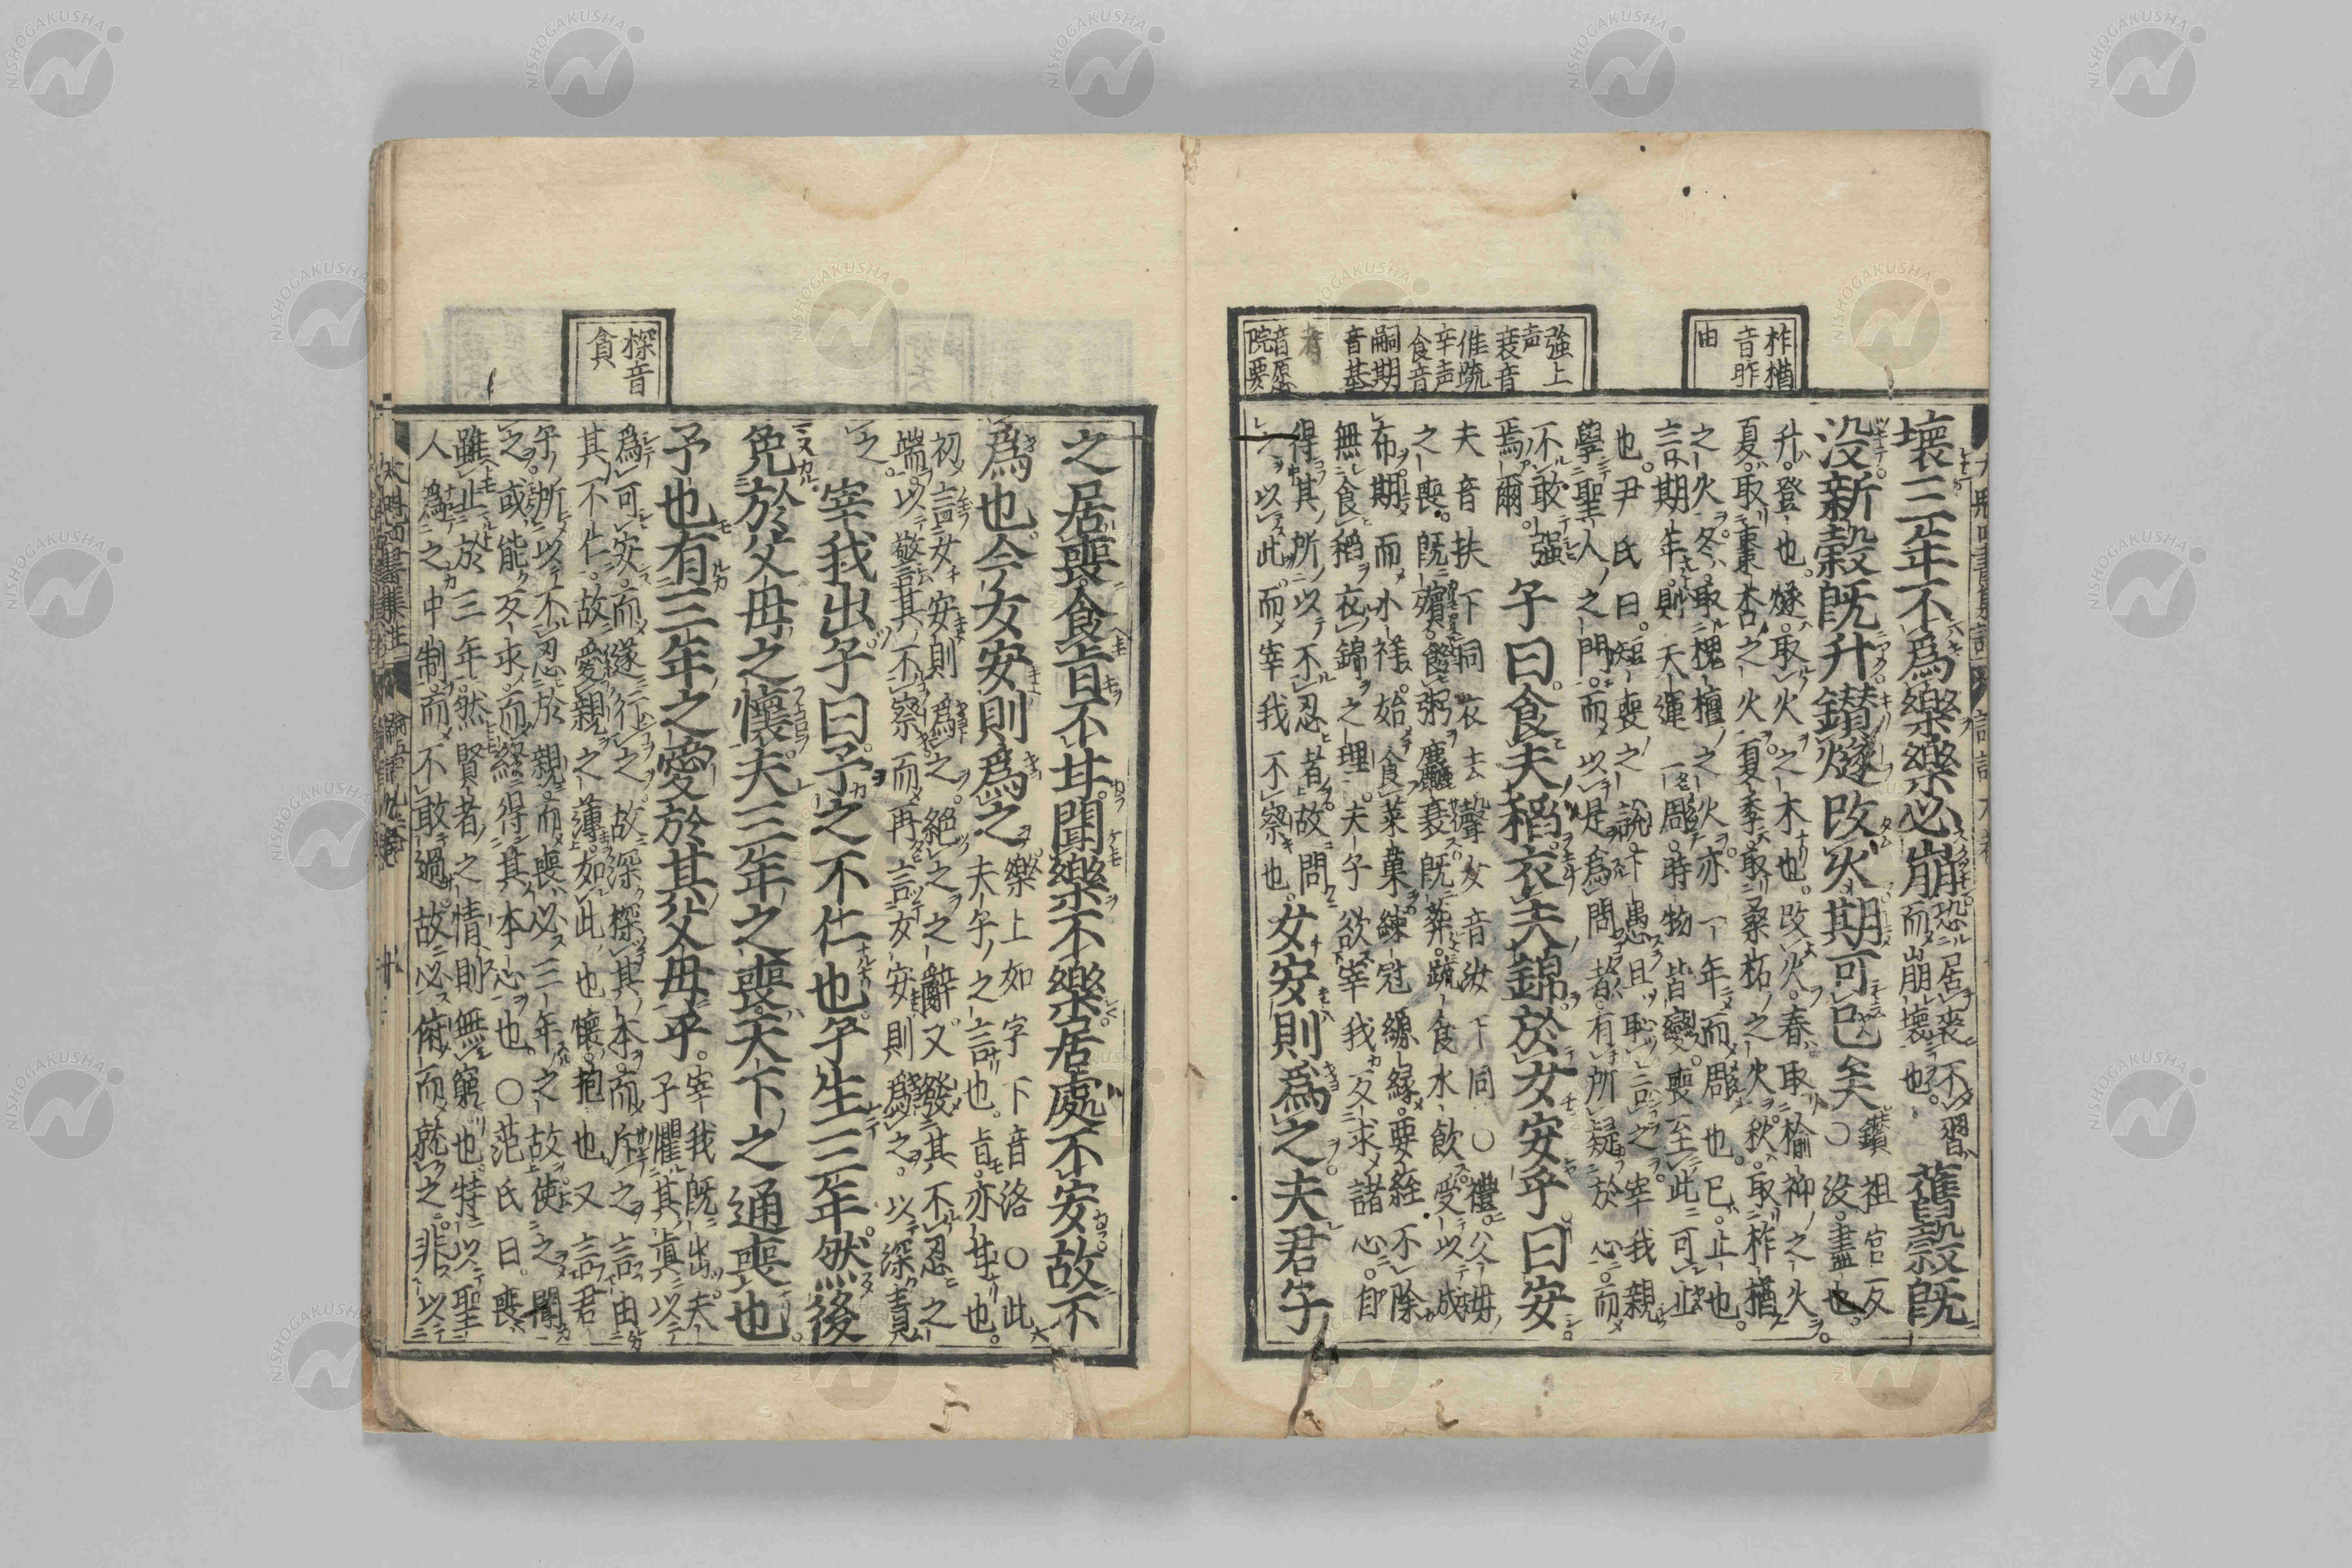 柞楢
音昨
由
強上
声
衰音
催疏
平声
食音
嗣期
音基
壞三年不爲樂樂必崩恐居喪不習
而崩壞也舊穀既
没新穀既升鑽燧改火期可已矣鑽祖官反
○没盡也
升登也燧取火之木也改火春取楡柳之火
夏取棗杏之火夏季取桑柘之火秋取柞楢
之火冬取槐檀之火亦一年而周也已止也
言期年則天運一周時物皆變喪至此可止
也尹氏曰短喪之說下愚且恥言之宰我親
學聖人之門而以是爲問者有所疑於心而
不敢強
焉爾子曰食夫稻衣夫錦於女安乎曰安
夫音扶下同衣去聲女音汝下同○禮父母
之喪既殯食粥麤衰既葬疏食水飲受以成
布期而小祥始食菜菓練冠縓緣要絰不除
無食稻衣錦之理夫子欲宰我反求諸心自
得其所以不忍者故問
之以此而宰我不察也女安則爲之夫君子
探音
貪
之居喪食旨不甘聞樂不樂居處不安故不
爲也今女安則爲之樂上如字下音洛○此
夫子之言也旨亦甘也
初言女安則爲之絶之之辭又發其不忍之
端以警其不察而再言女安則爲之以深責
之宰我出子曰予之不仁也子生三年然後
免於父母之懷夫三年之喪天下之通喪也
予也有三年之愛於其父母乎宰我既出夫
子懼其真以
爲可安而遂行之故深探其本而斥之言由
其不仁故愛親之薄如此也懷抱也又言君
子所以不忍於親而喪必三年之故使之聞
之或能反求而終得其本心也○范氏曰喪
雖止於三年然賢者之情則無窮也特以聖
人爲之中制而不敢過故必俯而就之非以